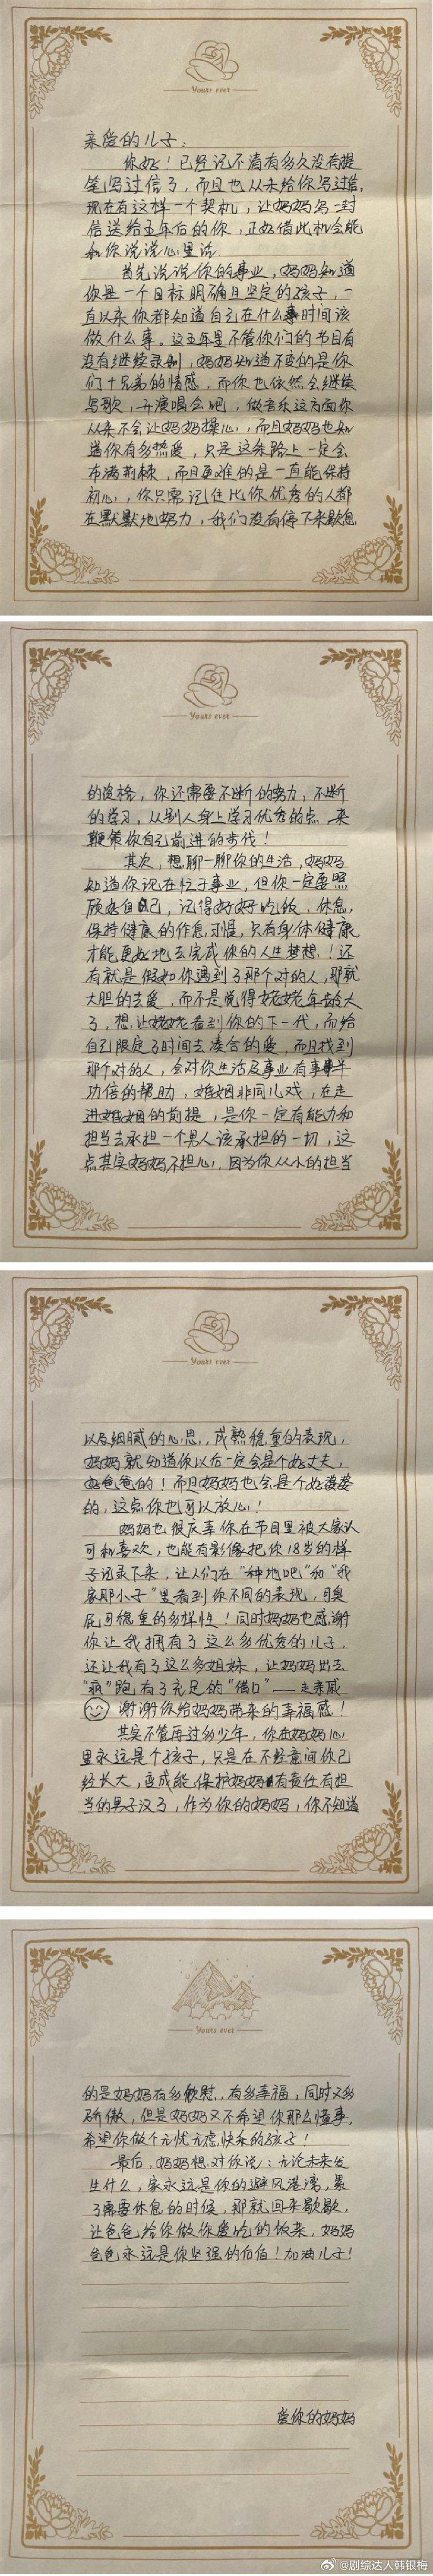 Yours ever
亲爱的儿子：
你好！已经记不清有多久没有提
笔写过信了，而且也从未给你写过信，
现在有这样一个契机，让妈妈写一封
信送给五年后的你，正好借此机会能
和你说说心里话.
首先说说你的事业，妈妈知道
你是一个目标明确且坚定的孩子，一
直以来你都知道自己在什么事时间该
做什么事。这五年里不管你们的节目有
没有继续录制，妈妈知道不变的是你
们十兄弟的情感，而你也依然会继续
写歌，开演唱会吧，做音乐这方面你
从来不会让妈妈操心，而且妈妈也知
道你有多热爱，只是这条路上一定会
布满荆棘，而且更难的是一直能保持
初心，你只需记住比你优秀的人都
在默默地努力，我们没有停下来歇息
Yours ever
的资格，你还需要不断的努力，不断
的学习，从别人身上学习优秀的点，来
鞭策你自己前进的步伐！
其次，想聊一聊你的生活，妈妈
知道你现在忙于事业，但你一定要照
顾好自己，记得好好吃饭、休息，
保持健康的作息习惯，只有身体健康
才能更好地去完成你的人生梦想！还
有就是假如你遇到了那个对的人，那就
大胆的去爱，而不是觉得姥姥年龄大
了，想让姥姥看到你的下一代，而给
自己限定了时间去凑合的爱，而且找到
那个对的人，会对你生活及事业有事半
功倍的帮助，婚姻非同儿戏，在走
进婚姻的前提，是你一定有能力和
担当去承担一个男人该承担的一切，这
点其实妈妈不担心，因为你从小的担当
Yours ever
以及细腻的心思，成熟稳重的表现，
妈妈就知道你以后一定会是个好丈夫，
好爸爸的！而且妈妈也会是个好婆婆
的，这点你也可以放心！
妈妈也很庆幸你在节目里被大家认
可和喜欢，也能有影像把你18岁的样
子记录下来，让人们在“种地吧”和“我
家那小子”里看到你不同的表现，可臭
屁可稳重的多样性！同时妈妈也感谢
你让我拥有了这么多优秀的儿子，
还让我有了这么多姐妹，让妈妈出去
“疯”跑有了充足的“借口”——走亲戚
谢谢你给妈妈带来的幸福感！
其实不管再过多少年，你在妈妈心
里永远是个孩子，只是在不经意间你已
经长大，变成能保护妈妈有责任有担
当的男子汉了，作为你的妈妈，你不知道
Yours ever
的是妈妈有多欣慰，有多幸福，同时又多
骄傲，但是妈妈又不希望你那么懂事，
希望你做个无忧无虑快乐的孩子！
最后，妈妈想对你说：无论未来发
生什么，家永远是你的避风港湾，累
了需要休息的时候，那就回来歇歇，
让爸爸给你做你爱吃的饭菜，妈妈
爸爸永远是你坚强的后盾！加油儿子！
爱你的妈妈
@剧综达人韩银梅